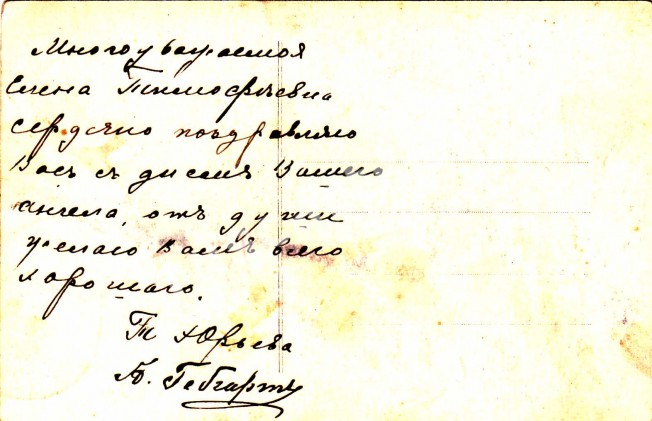 Многоуважаемая
Елена Тимофѣевна
сердечно поздравляю
Васъ съ днемъ Вашего
ангела, отъ души
желаю Вамъ всего
хорошаго.
Т Юрьева
Гебгартъ